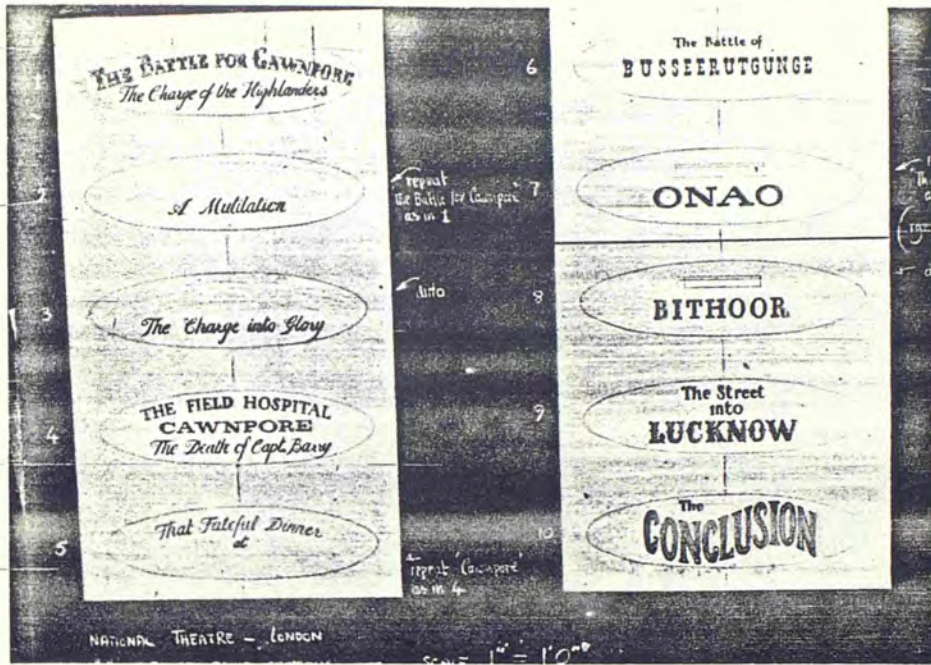 1
THE BATTLE FOR CAWNPORE
The Charge of the Highlanders
2
A Mutilation
repeat
the Battle for Cawnpore
as in 1
3
The Charge into Glory
ditto
4
THE FIELD HOSPITAL
CAWNPORE
The Death of Capt. Barry
5
That Fateful Dinner
at
repeat 'Cawnpore'
as in 4
6
The Battle of
BUSSEERUTGUNGE
7
ONAO
8
BITHOOR
9
The Street
into
LUCKNOW
10
The
CONCLUSION
NATIONAL THEATRE – LONDON
SCALE 1" = 1'0"